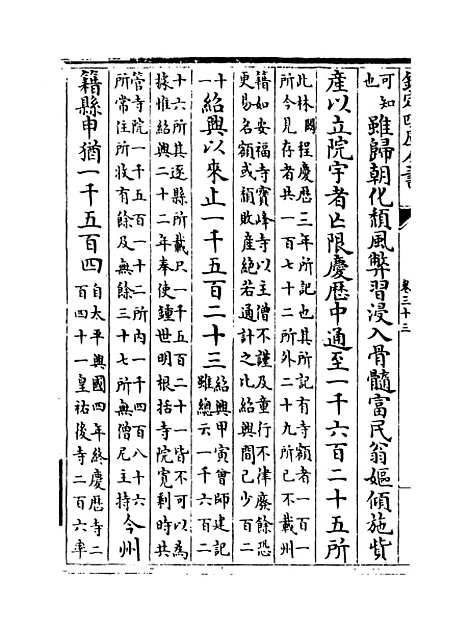 欽定四庫全書 卷三十三
可知
也
雖歸朝化頹風弊習浸入骨髓富民翁嫗傾施貲
產以立院宇者亡限慶歷中通至一千六百二十五所
此林 程慶歷三年所記也其所記有寺額者一百一
所今見存者共一百七十二所外二十九所已不載州
籍如安福寺寶峰寺以主僧不謹及童行不律廢餘恐
更易名額或頽敗産絶若通計之比紹興間已少百二
十
一
紹興以來止一千五百二十三
紹興甲寅曾師建記
雖總云一千六百二
十六所其逐縣所載只一千五百二十一皆不可以為
據惟紹興二十二年奉使鍾世明根括寺院寬剩時共
管寺院一千五百一十二所内一千四百八十六
所常住所收有餘及無餘三十七所無僧尼主持
今州
籍縣申猶一千五百四
自太平興國四年終慶歷寺二
百四十一皇祐後寺二百六率